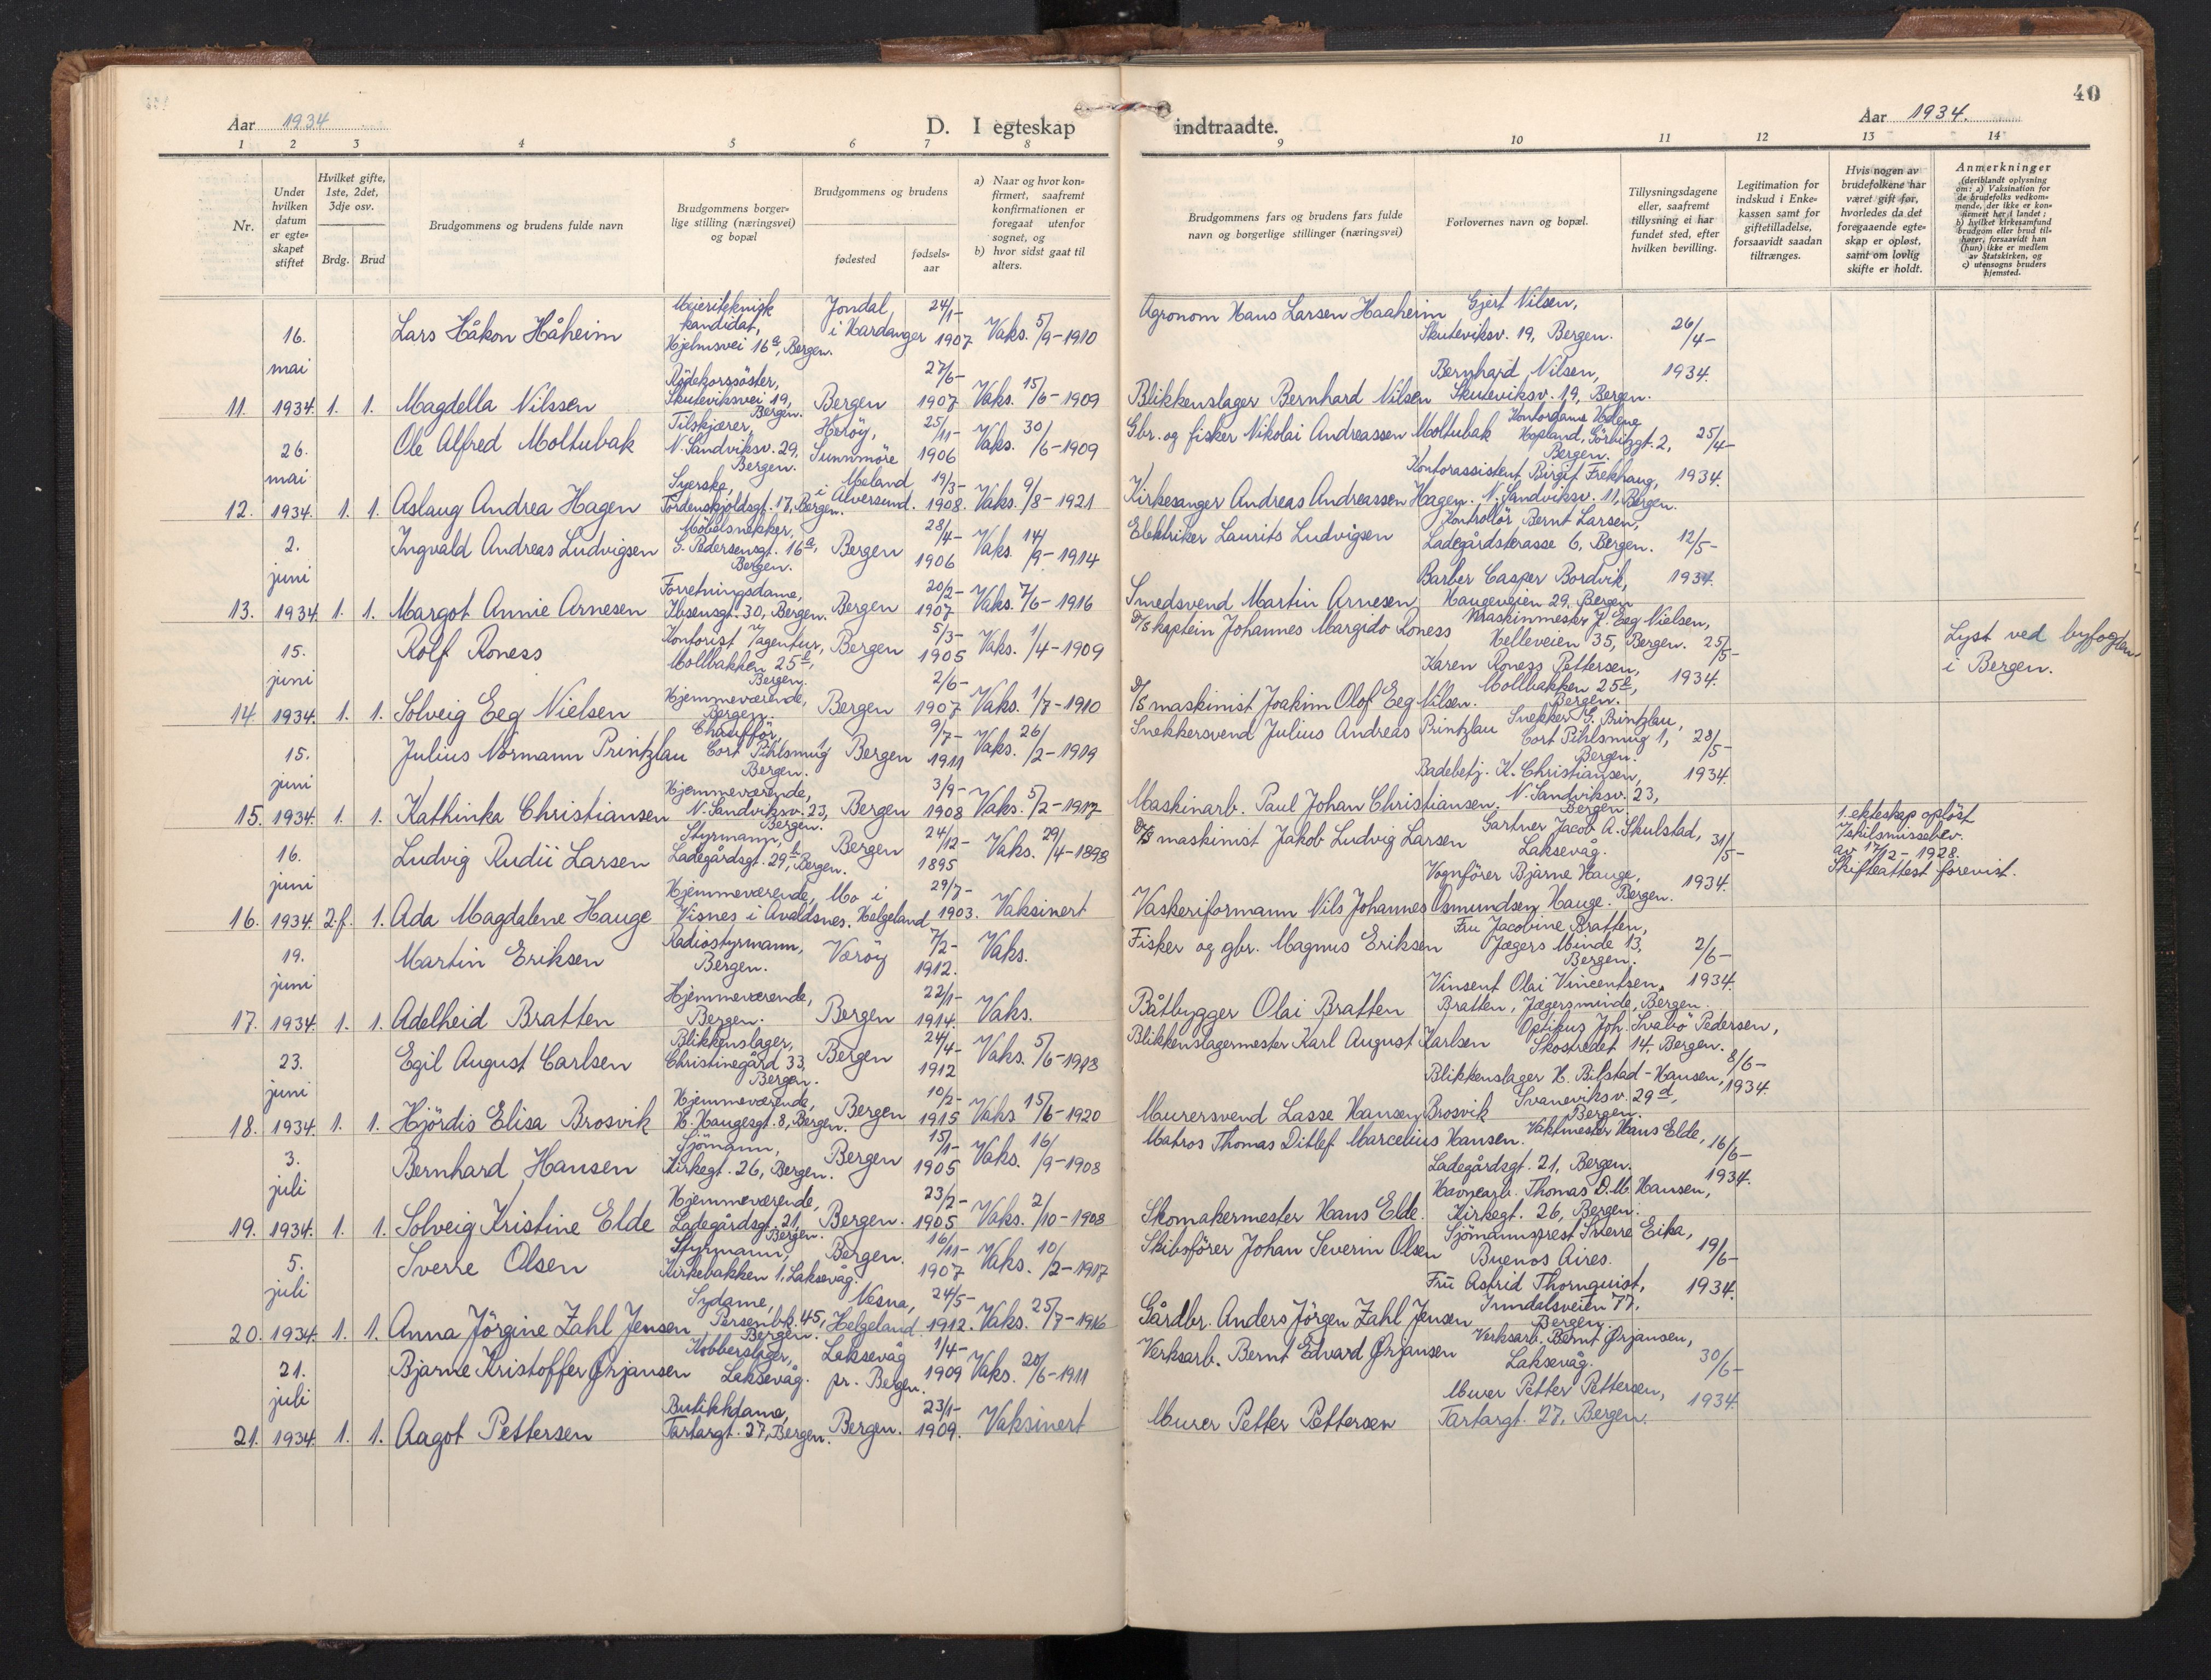 Aar 1934
D. I egteskap
1 2 3 4 5 6 7 8
Nr.
Under hvilken datum er egte-skapet stiftet
Hvilket gifte, 1ste, 2det, 3dje osv.
Brdg. Brud
Brudgommens og brudens fulde navn
Brudgommens borger-lige stilling (næringsvei) og bopæl
Brudgommens og brudens
fødested
fødsels-aar
a) Naar og hvor kon-firmert, saafremt konfirmationen er foregaat utenfor sognet, og
b) hvor sidst gaat til alters.
40
indtraadte.
Aar 1934.
9 10 11 12 13 14
Brudgommens fars og brudens fars fulde navn og borgerlige stillinger (næringsvei)
Forlovernes navn og bopæl.
Tillysningsdagene eller, saafremt tillysning ei har fundet sted, efter hvilken bevilling.
Legitimation for indskud i Enke-kassen samt for giftetilladelse, forsaavidt saadan tiltrænges.
Hvis nogen av brudefolkene har været gift før, hvorledes da det foregaaende egte-skap er opløst, samt om lovlig skifte er holdt.
Anmerkninger
(deriblandt oplysning om: a) Vaksination for de brudefolks vedkom-mende, der ikke er kon-firmert her i landet; b) hvilket kirkesamfund brudgom eller brud til-hører, forsaavidt han (hun) ikke er medlem av Statskirken, og c) utensogns bruders hjemsted.
16. Lars Håkon Håheim Meieriteknisk kandidat, Hjelmsvei 16a, Bergen. Jondal, i Hardanger 24/1-1907 Vaks. 5/9-1910 Agronom Hans Larsen Haaheim Gjert Nilsen, Skuteviksv. 19, Bergen. 26/4-
mai
11. 1934. 1. 1. Magdella Nilssen Rödekorssöster, Skuteviksvei 19, Bergen. Bergen 27/6-1907 Vaks. 15/6-1909 Blikkenslager Bernhard Nilsen Bernhard Nilsen, Skuteviksv. 19, Bergen. 1934.
26. Ole Alfred Moltubak Tilskjærer, N. Sandviksv. 29, Bergen. Heröy, Sunnmöre 25/11-1906 Vaks. 30/6-1909 Gbr. og fisker Nikolai Andreassen Moltubak Kontordame Helene Hopland, Sörbizgt. 2, Bergen. 25/4-
mai
12. 1934. 1. 1. Aslaug Andrea Hagen Syerske, Tordenskjoldsgt. 17, Bergen. Meland i Alversund. 19/3-1908. Vaks. 9/8-1921 Kirkesanger Andreas Andreassen Hagen. Kontorassistent Birgit Frekhaug, N. Sandviksv. 11, Bergen. 1934.
2. Ingvald Andreas Ludvigsen Möbelsnekker, G. Pedersensgt. 16a, Bergen. Bergen 28/4-1906 Vaks. 14/9-1914 Elektriker Laurits Ludvigsen Kontrollör Bernt Larsen, Ladegårdsterasse 6, Bergen. 12/5-
juni
13. 1934. 1. 1. Margot Annie Arnesen Forretningsdame, Ibsensgt. 30, Bergen. Bergen 20/2-1907 Vaks. 7/6-1916 Smedsvend Martin Arnesen Barber Casper Bordvik, Haugeveien 29, Bergen 1934.
15. Rolf Roness Kontorist i agentur, Mollbakken 25b, Bergen. Bergen 5/3-1905 Vaks. 1/4-1909 D/S kaptein Johannes Margido Roness Maskinmester J. Eeg Nielsen, Helleveien 35, Bergen. 25/5- Lyst ved byfogden i Bergen.
juni
14. 1934. 1. 1. Solveig Eeg Nielsen Hjemmeværende, Bergen. Bergen 2/6-1907 Vaks. 1/7-1910 D/S maskinist Joakim Olof Eeg Nilsen. Karen Roness Pettersen, Mollbakken 25b, Bergen. 1934.
15. Julius Normann Printzlau Chauffør, Cort Pihlsmug 1, Bergen. Bergen 9/7-1911 Vaks. 26/2-1919 Snekkersvend Julius Andreas Printzlau Snekker G. Printzlau, Cort Pihlsmug 1, Bergen. 28/5-
juni
15. 1934. 1. 1. Kathinka Christiansen Hjemmeværende, N. Sandviksv. 23, Bergen. Bergen 3/9-1908 Vaks. 5/2-1917 Maskinarb. Paul Johan Christiansen. Badebetj. K. Christiansen, N. Sandviksv. 23, Bergen 1934.
16. Ludvig Rudii Larsen Styrmann, Ladegårdsgt. 29b, Bergen. Bergen 24/12-1895 Vaks. 29/4-1898 D/S maskinist Jakob Ludvig Larsen Gartner Jacob A. Skulstad, Laksevåg. 31/5- 1. ekteskap oplöst v/skilsmissebev. av 17/12-1928. Skifteattest forevist.
juni
16. 1934. 2.f. 1. Ada Magdalene Hauge Hjemmeværende, Visnes i Avaldsnes. Mo i Helgeland 29/7-1903. Vaksinert Vaskeriformann Nils Johannes Osmundsen Hauge. Vognförer Bjarne Hauge, Bergen. 1934.
19. Martin Eriksen Radiostyrmann, Bergen. Væröy 7/2-1912. Vaks. Fisker og gbr. Magnus Eriksen Fru Jacobine Bratten, Jægers Minde 13, Bergen. 2/6-
juni
17. 1934. 1. 1. Adelheid Bratten Hjemmeværende, Bergen. Bergen 22/1-1914. Vaks. Båtbygger Olai Bratten Vinsent Olai Vincentsen Bratten, Jægersminde, Bergen. 1934.
23. Egil August Carlsen Blikkenslager, Christinegård 33, Bergen. Bergen 24/4-1912 Vaks. 5/6-1918 Blikkenslagermester Karl August Karlsen Optikus Joh. Svabö Pedersen, Skostredet 14, Bergen. 8/6-
juni
18. 1934. 1. 1. Hjördis Elisa Brosvik Hjemmeværende, H. Haugesgt. 8, Bergen. Bergen 10/2-1915 Vaks 15/6-1920 Murersvend Lasse Hansen Brosvik Blikkenslager H. Bilstad-Hansen, Svaneviksv. 29a, Bergen. 1934.
3. Bernhard Hansen Sjömann, Kirkegt. 26, Bergen. Bergen 15/1-1905 Vaks. 16/9-1908 Matros Thomas Ditlef Marcelius Hansen. Vaktmester Hans Elde, Ladegårdsgt. 21, Bergen. 16/6-
juli
19. 1934. 1. 1. Solveig Kristine Elde Hjemmeværende, Ladegårdsgt. 21, Bergen. Bergen. 23/2-1905 Vaks. 2/10-1908 Skomakermester Hans Elde. Havnearb. Thomas D.M. Hansen, Kirkegt. 26, Bergen. 1934.
5. Sverre Olsen Styrmann, Kirkebakken 1, Laksevåg. Bergen. 16/11-1907 Vaks. 10/2-1917 Skibsförer Johan Severin Olsen Sjömannsprest Sverre Eika, Buenos Aires. 19/6-
juli
20. 1934. 1. 1. Anna Jörgine Zahl Jensen Sydame, Persenbk. 45, Bergen. Nesna, Helgeland. 24/5-1912. Vaks. 25/7-1916 Gårdbr. Anders Jörgen Zahl Jensen Fru Astrid Thornquist, Inndalsveien 77, Bergen. 1934.
21. Bjarne Kristoffer Ørjansen Kobberslager, Laksevåg. Laksevåg pr. Bergen. 1/4-1909 Vaks. 20/6-1911 Verksarb. Bernt Edvard Ørjansen Verksarb. Bernt Ørjansen, Laksevåg. 30/6-
juli
21. 1934. 1. 1. Aagot Pettersen Butikkdame, Tartargt. 27, Bergen. Bergen. 23/1-1909. Vaksinert Murer Petter Pettersen Murer Petter Pettersen, Tartargt. 27, Bergen. 1934.